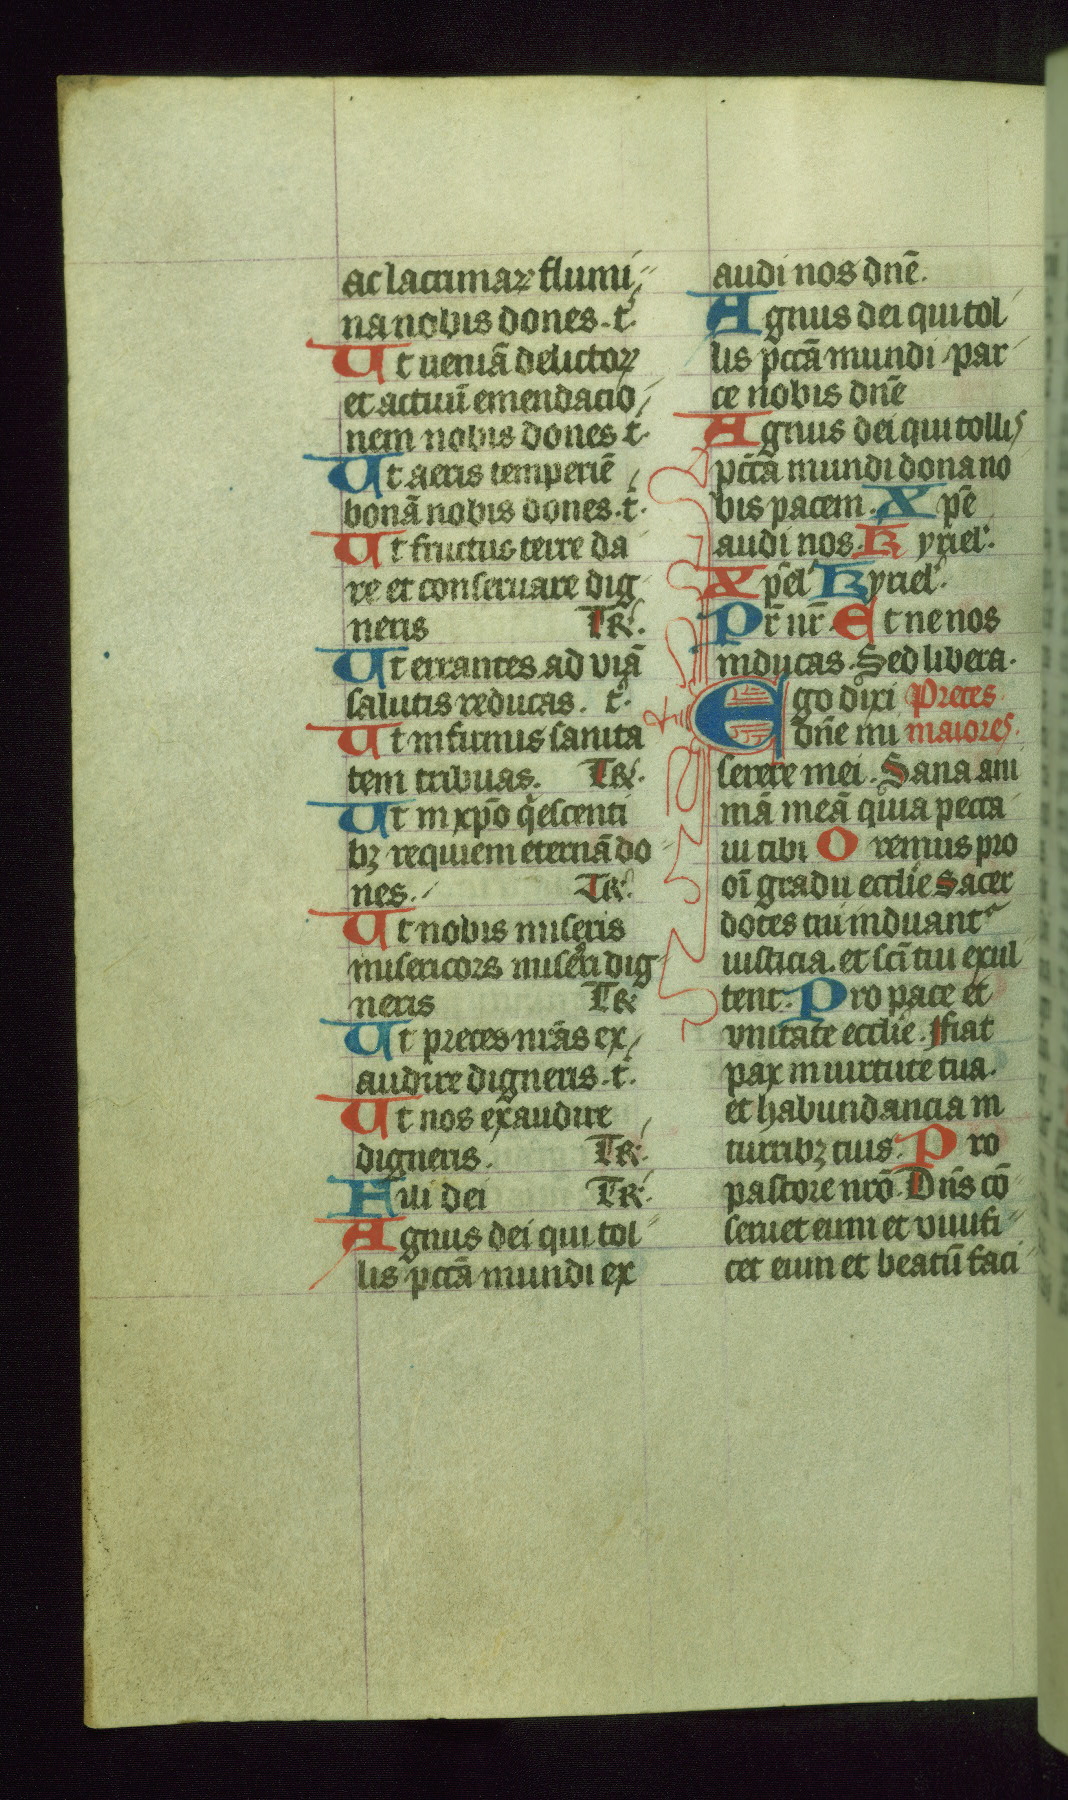 ac lacrimaꝝ flumi
na nobis dones. t̾.
Ut ueniā delictoꝝ
et actuū emendacio
nem nobis dones t̾.
Ut aeris temperiē
bonā nobis dones. t̾.
Ut fructus terre da
re et conseruare dig
neris TR.
Ut errantes ad viā
salutis reducas. t̾.
Ut infirmis sanita
tem tribuas. TR.
Ut in xp̄o q̇escenti
bꝫ requiem eternā do
nes. TR.
Ut nobis miseris
misericors mise͛ri dig
neris TR
Ut preces nr̄as ex
audire digneris. t̾.
Ut nos exaudire
digneris. TR.
Fili dei TR.
Agnus dei qui tol
lis pctā mundi ex
audi nos dn̄e.
Agnus dei qui tol
lis pctā mundi par
ce nobis dn̄e
Agnus dei qui tollis
pctā mundi dona no
bis pacem. Xpē
audi nos. Kyriel̾.
Xpēl̾ Kyriel̾.
Pr̄ nr̄. Et ne nos
inducas. Sed libera.
Ego dixi Preces
dn̄e mi maiores.
serere mei. Sana ani
mā meā quia pecca
ui tibi Oremus pro
oī gradu eccl̄ie Sacer
dotes tui induant᷑
iusticia. et sc̄i tui exul
tent. Pro pace et
vnitate eccl̄ie. Fiat
pax in uirtute tua.
et habundancia in
turribꝫ tuis. Pro
pastore nr̄o. Dn̄s cō
seruet eum et viuifi
cet eum et beatū faci